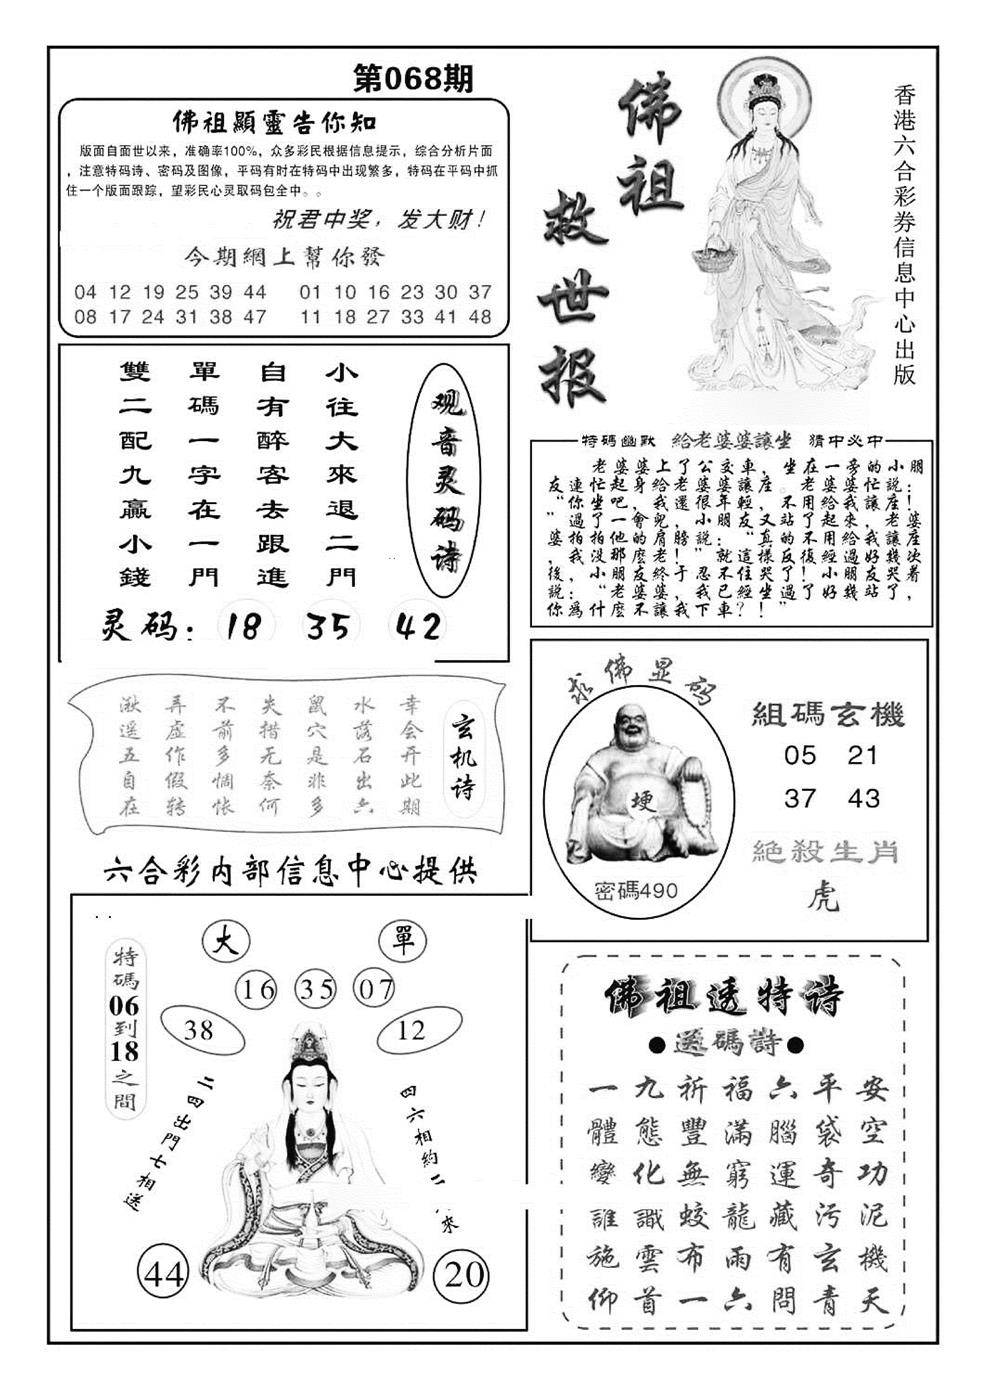 第068期
佛祖顯靈告你知
版面自面世以来，准确率100%，众多彩民根据信息提示，综合分析片面
，注意特码诗、密码及图像，平码有时在特码中出现繁多，特码在平码中抓
住一个版面跟踪，望彩民心灵取码包全中。。
祝君中奖，发大财！
今期網上幫你發
04 12 19 25 39 44 01 10 16 23 30 37
08 17 24 31 38 47 11 18 27 33 41 48
佛祖
救世报
香港六合彩券信息中心出版
观音灵码诗
小往大來退二門
自有醉客去跟進
單碼一字在一門
雙二配九贏小錢
灵码：18 35 42
特碼幽默 給老婆婆讓坐 猜中必中
老婆婆上了公交車，坐在一旁的小朋
友連忙起身給老婆婆讓座。老婆婆忙説：
“你坐吧，我還很年輕，不用給我讓座！
”過了一會兒，小朋友又站了起來，老婆
婆拍拍他的肩膀説：“真的不用給我讓座
，我没那麽老！”就這樣反復經過好幾次
後，小朋友終于忍不住哭了！小朋友哭着
説：“老婆婆，我已經坐過了好幾站了，
你爲什麽不讓我下車？！”
玄机诗
幸会开此期
水落石出六
鼠穴是非多
失措无奈何
不前多惆怅
弄虚作假转
湫遥五自在
求佛显码
埂
密碼490
組碼玄機
05 21
37 43
絕殺生肖
虎
六合彩内部信息中心提供
大 單
16 35 07
38 12
特碼06到18之間
二四出門七相送
四六相約二
來
44 20
佛祖透特诗
●送碼詩●
安空功泥機天
平袋奇污玄青
六腦運藏有問
福滿窮龍雨六
祈豐無蛟布一
九態化識雲首
一體變誰施仰